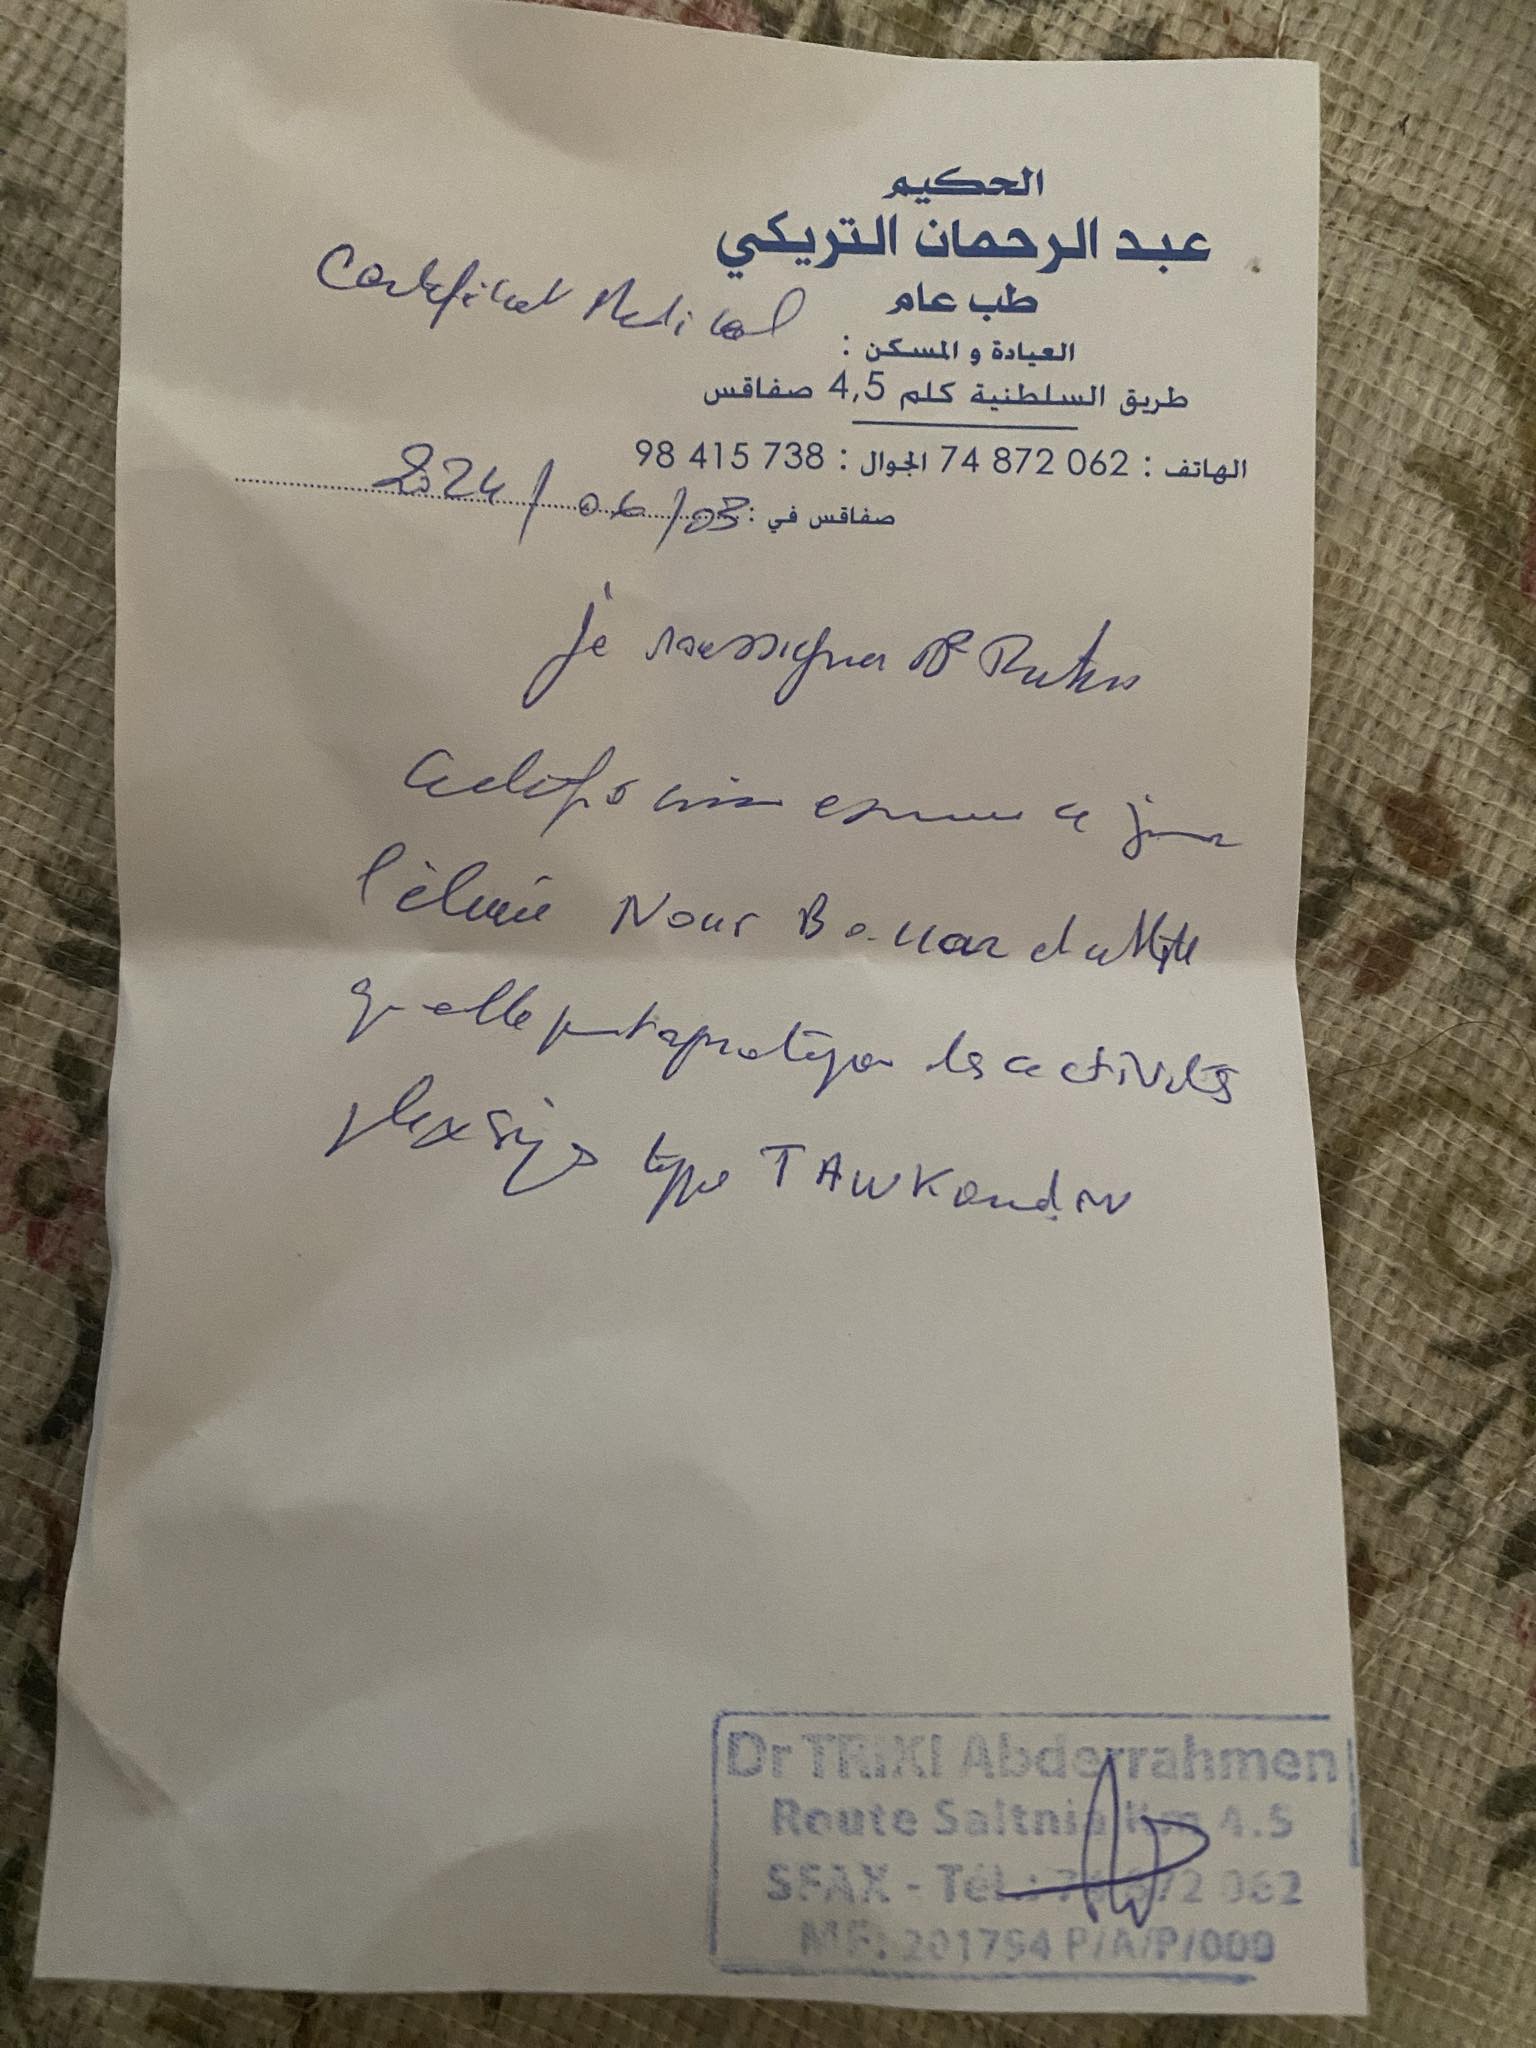 الحكيم
عبد الرحمان التريكي
طب عام
Certificat Medical
العيادة و المسكن :
طريق السلطنية كلم 4,5 صفاقس
الهاتف : 74 872 062 الجوال : 98 415 738
صفاقس في : 03/06/2024
je soussigner Dr
avoir examiner ce jour
l'élève Nour
qu elle peut pratiquer les activités
physiq type TAWKondov
Dr TRIKI Abderrahmen
Route Saltnia Km 4.5
SFAX - Tél.: 74 872 062
MF: 201794 P/A/P/000